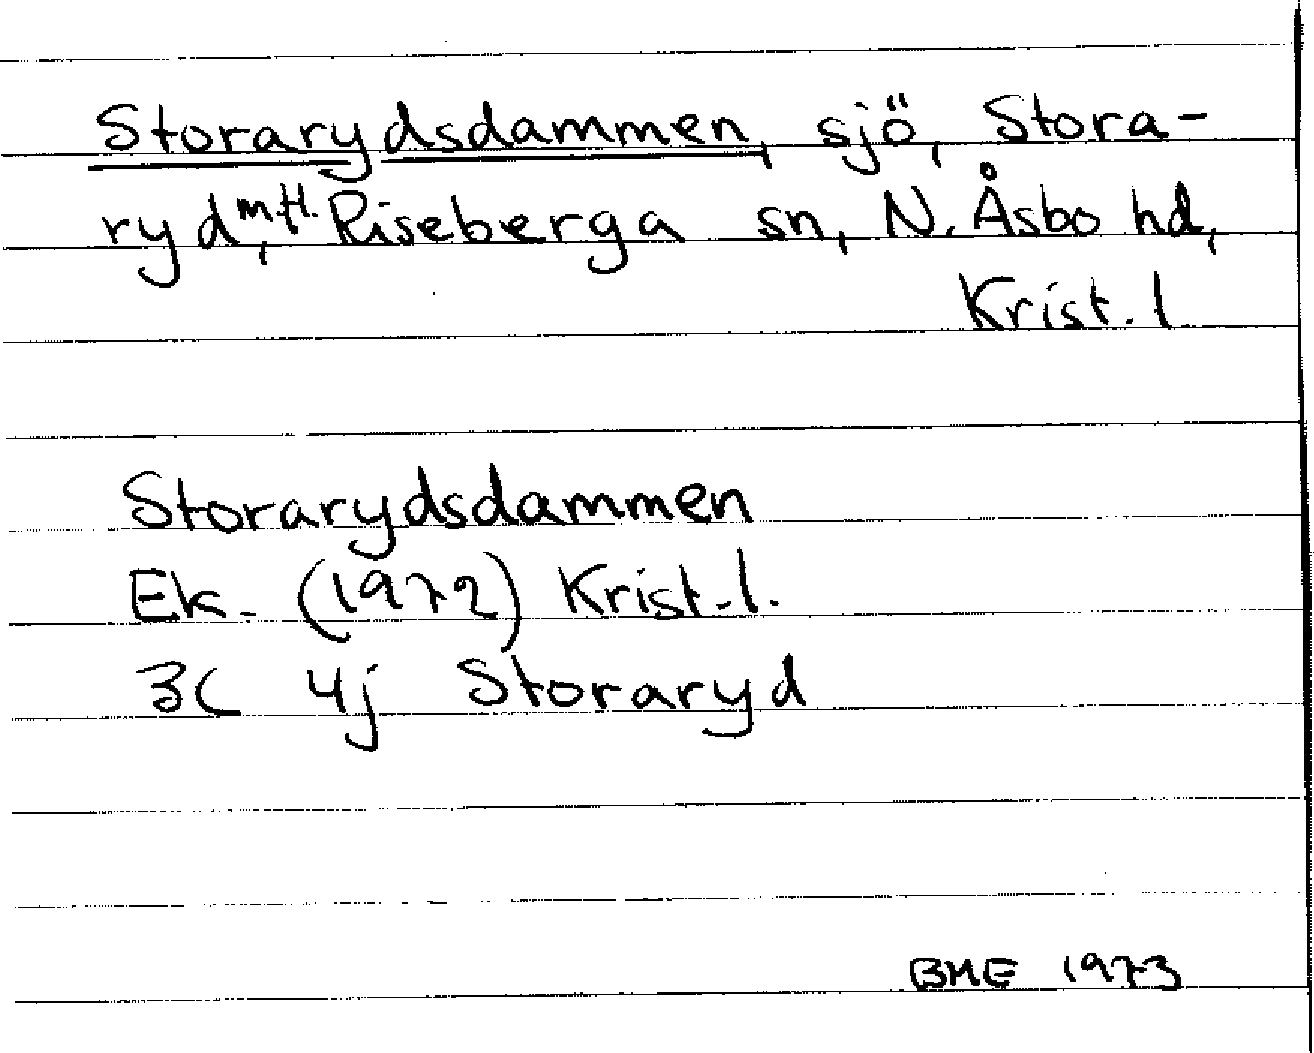 Storarydsdammen, sjö, Stora-
ryd m.fl., Riseberga sn, N. Åsbo hd,
Krist. l
Storarydsdammen
Ek. (1972) Krist. l.
3C 4j Storaryd
BME 1973